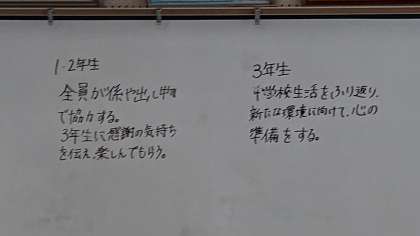 1・2年生
全員が係や出し物
で協力する。
3年生に感謝の気持ち
を伝え、楽しんでもらう。
3年生
中学校生活をふり返り、
新たな環境に向けて、心の
準備をする。